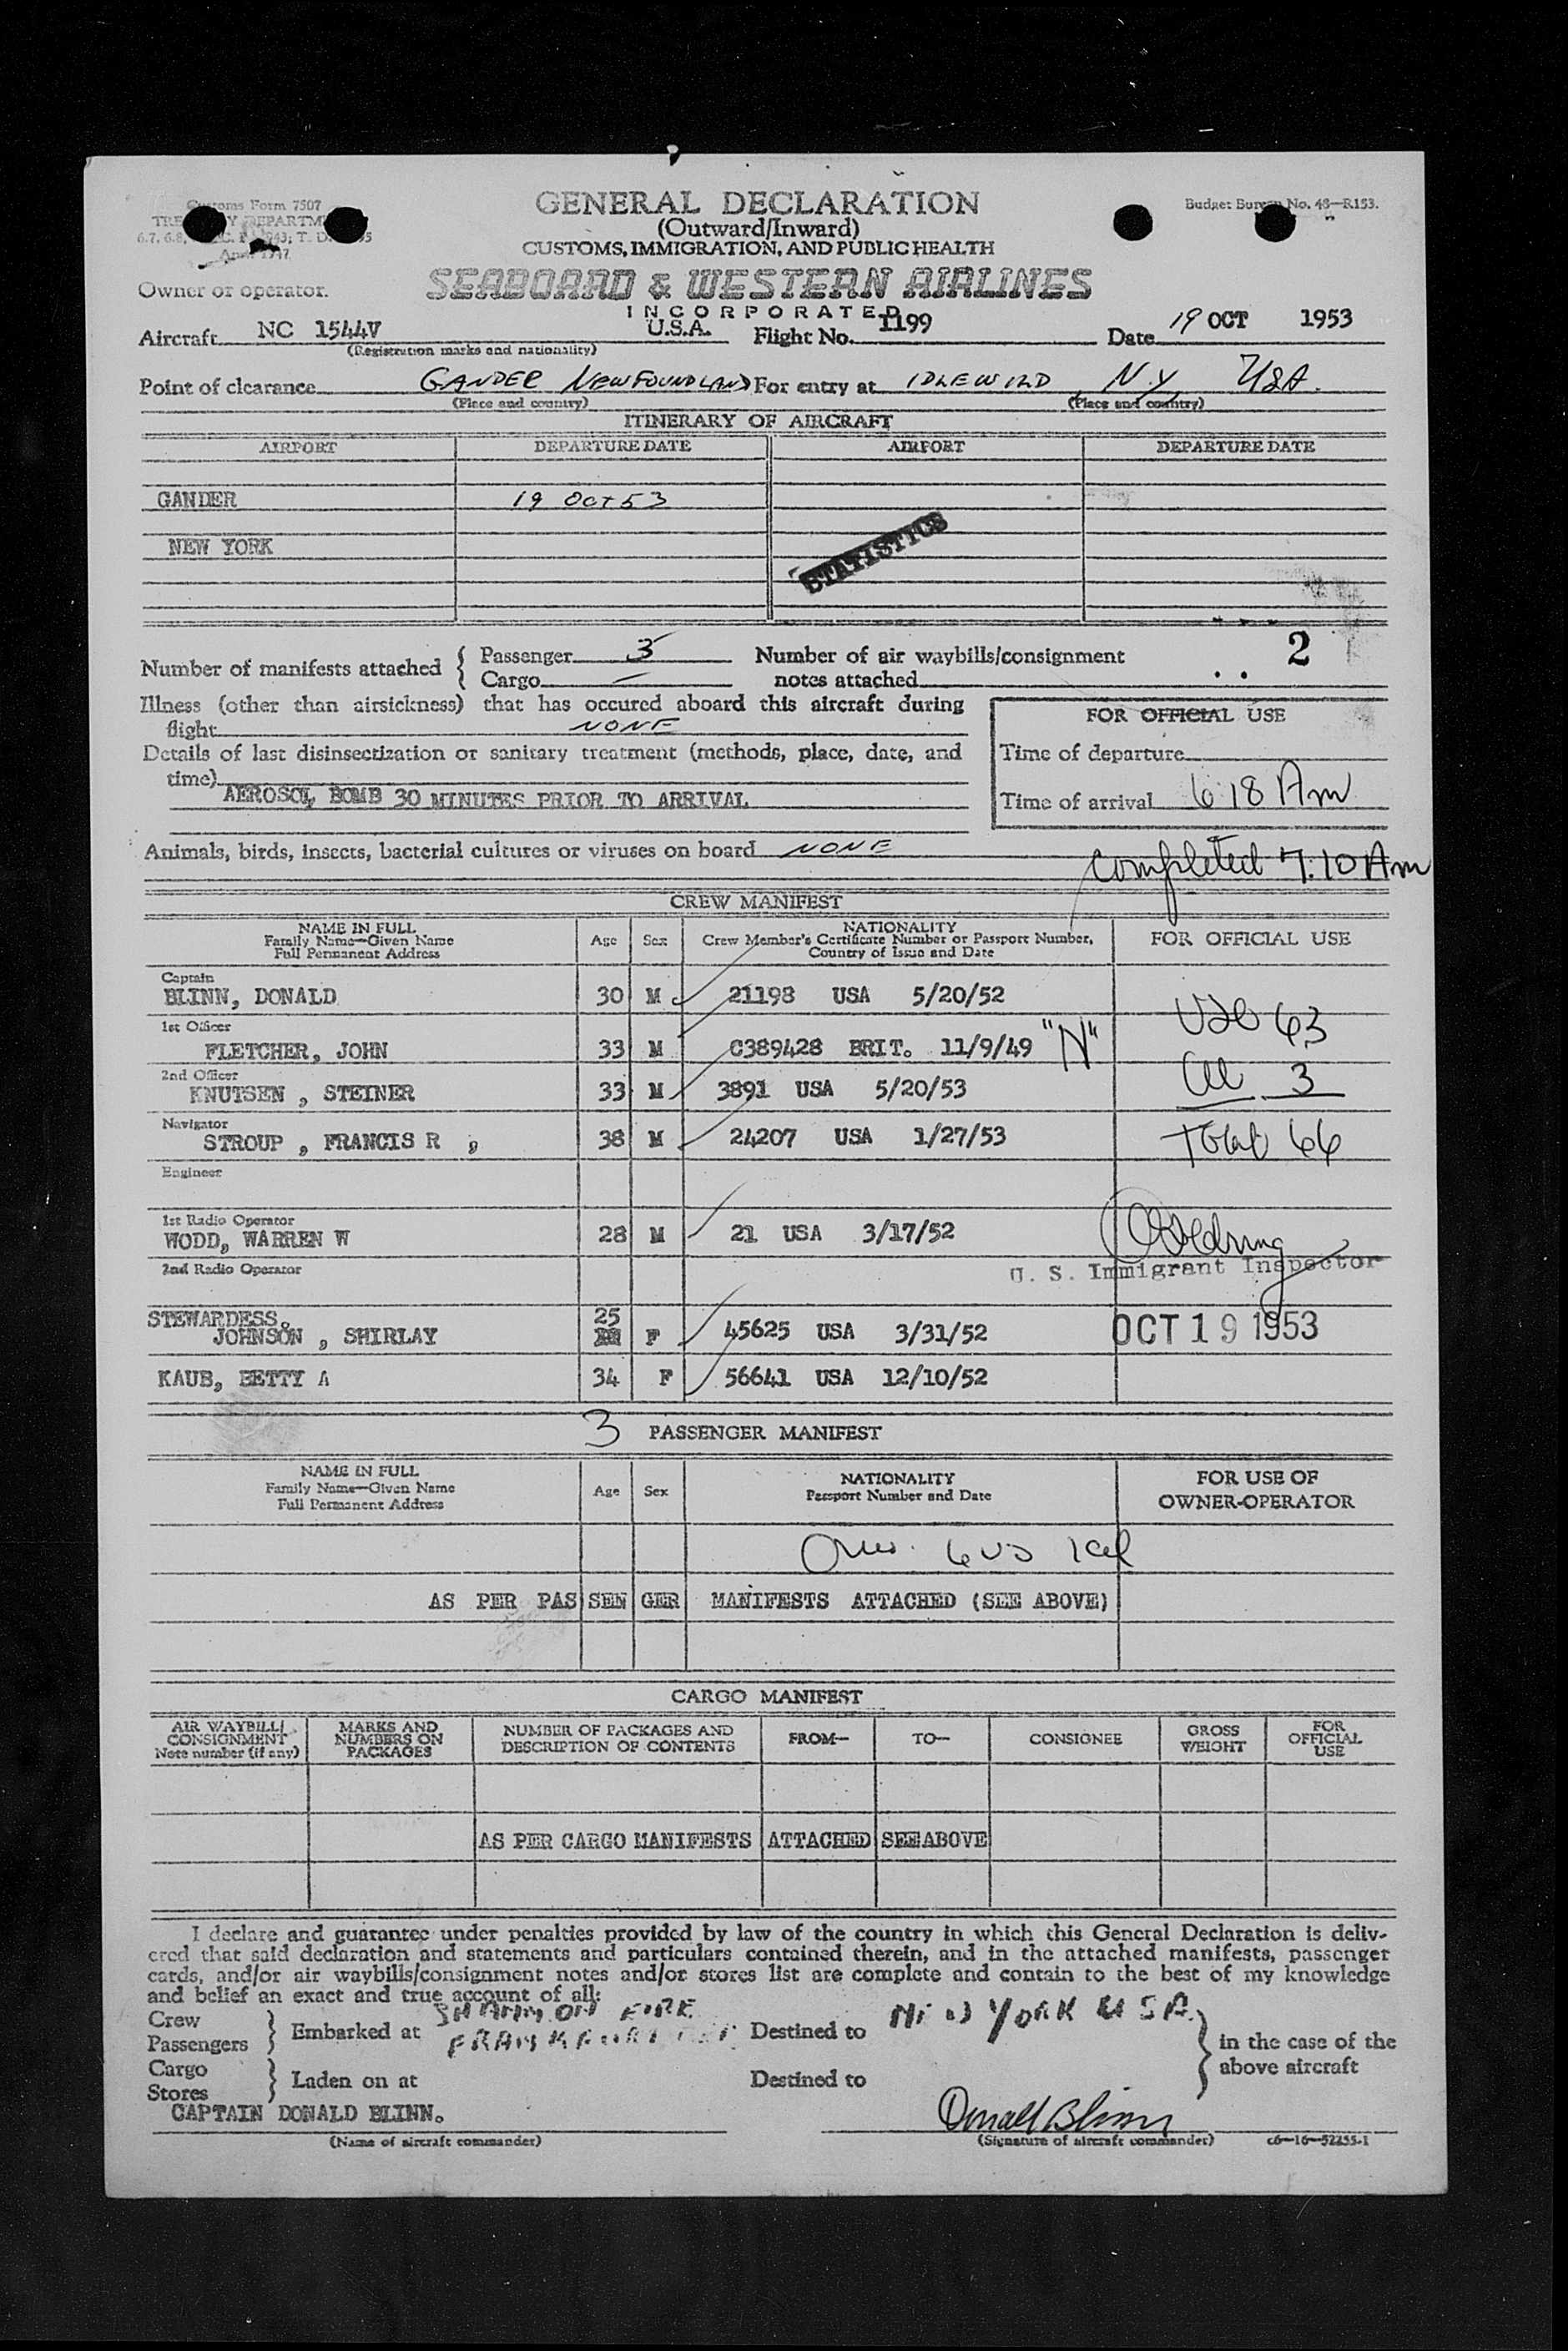 Customs Form 7507
GENERAL DECLARATION
Budget Bureau No. 48—R153.
(Outward/Inward)
CUSTOMS, IMMIGRATION, AND PUBLIC HEALTH
SEABOARD & WESTERN AIRLINES
Owner or operator.
INCORPORATED
Aircraft NC 1544V U.S.A. Flight No. 1199 Date 19 OCT 1953
(Registration marks and nationality)
Point of clearance GANDER NEWFOUNDLAND For entry at IDLEWILD N.Y USA.
(Place and country) (Place and country)
ITINERARY OF AIRCRAFT
AIRPORT DEPARTURE DATE AIRPORT DEPARTURE DATE
GANDER 19 OCT 53
STATISTICS
NEW YORK
2
Number of manifests attached { Passenger 3 Number of air waybills/consignment
Cargo — notes attached
Illness (other than airsickness) that has occured aboard this aircraft during
flight NONE
FOR OFFICIAL USE
Details of last disinsectization or sanitary treatment (methods, place, date, and
time)
Time of departure
AEROSOL BOMB 30 MINUTES PRIOR TO ARRIVAL
Time of arrival 6 18 Am
Animals, birds, insects, bacterial cultures or viruses on board NONE
Completed 7:10 Am
CREW MANIFEST
NAME IN FULL
Family Name—Given Name
Full Permanent Address
Age Sex
NATIONALITY
Crew Member's Certificate Number or Passport Number,
Country of Issue and Date
FOR OFFICIAL USE
Captain
BLINN, DONALD 30 M 21198 USA 5/20/52
1st Officer
FLETCHER, JOHN 33 M C389428 BRIT. 11/9/49 "N"
63
2nd Officer
KNUTSEN , STEINER 33 M 3891 USA 5/20/53
3
Navigator
STROUP , FRANCIS R , 38 M 24207 USA 1/27/53
Total 66
Engineer
1st Radio Operator
WODD, WARREN W 28 M 21 USA 3/17/52
2nd Radio Operator
U. S. Immigrant Inspector
STEWARDESS.
JOHNSON , SHIRLAY 25 F 45625 USA 3/31/52
OCT 19 1953
KAUB, BETTY A 34 F 56641 USA 12/10/52
3 PASSENGER MANIFEST
NAME IN FULL
Family Name—Given Name
Full Permanent Address
Age Sex
NATIONALITY
Passport Number and Date
FOR USE OF
OWNER-OPERATOR
AS PER PAS SEN GER MANIFESTS ATTACHED (SEE ABOVE)
CARGO MANIFEST
AIR WAYBILL/
CONSIGNMENT
Note number (if any)
MARKS AND
NUMBERS ON
PACKAGES
NUMBER OF PACKAGES AND
DESCRIPTION OF CONTENTS
FROM— TO— CONSIGNEE
GROSS
WEIGHT
FOR
OFFICIAL
USE
AS PER CARGO MANIFESTS ATTACHED SEE ABOVE
I declare and guarantee under penalties provided by law of the country in which this General Declaration is deliv-
ered that said declaration and statements and particulars contained therein, and in the attached manifests, passenger
cards, and/or air waybills/consignment notes and/or stores list are complete and contain to the best of my knowledge
and belief an exact and true account of all:
Crew
Passengers } Embarked at SHANNON EIRE Destined to NEW YORK USA.
in the case of the
above aircraft
Cargo
Stores } Laden on at Destined to
CAPTAIN DONALD BLINN. Donald Blinn
(Name of aircraft commander) (Signature of aircraft commander) c6—16—52255-1